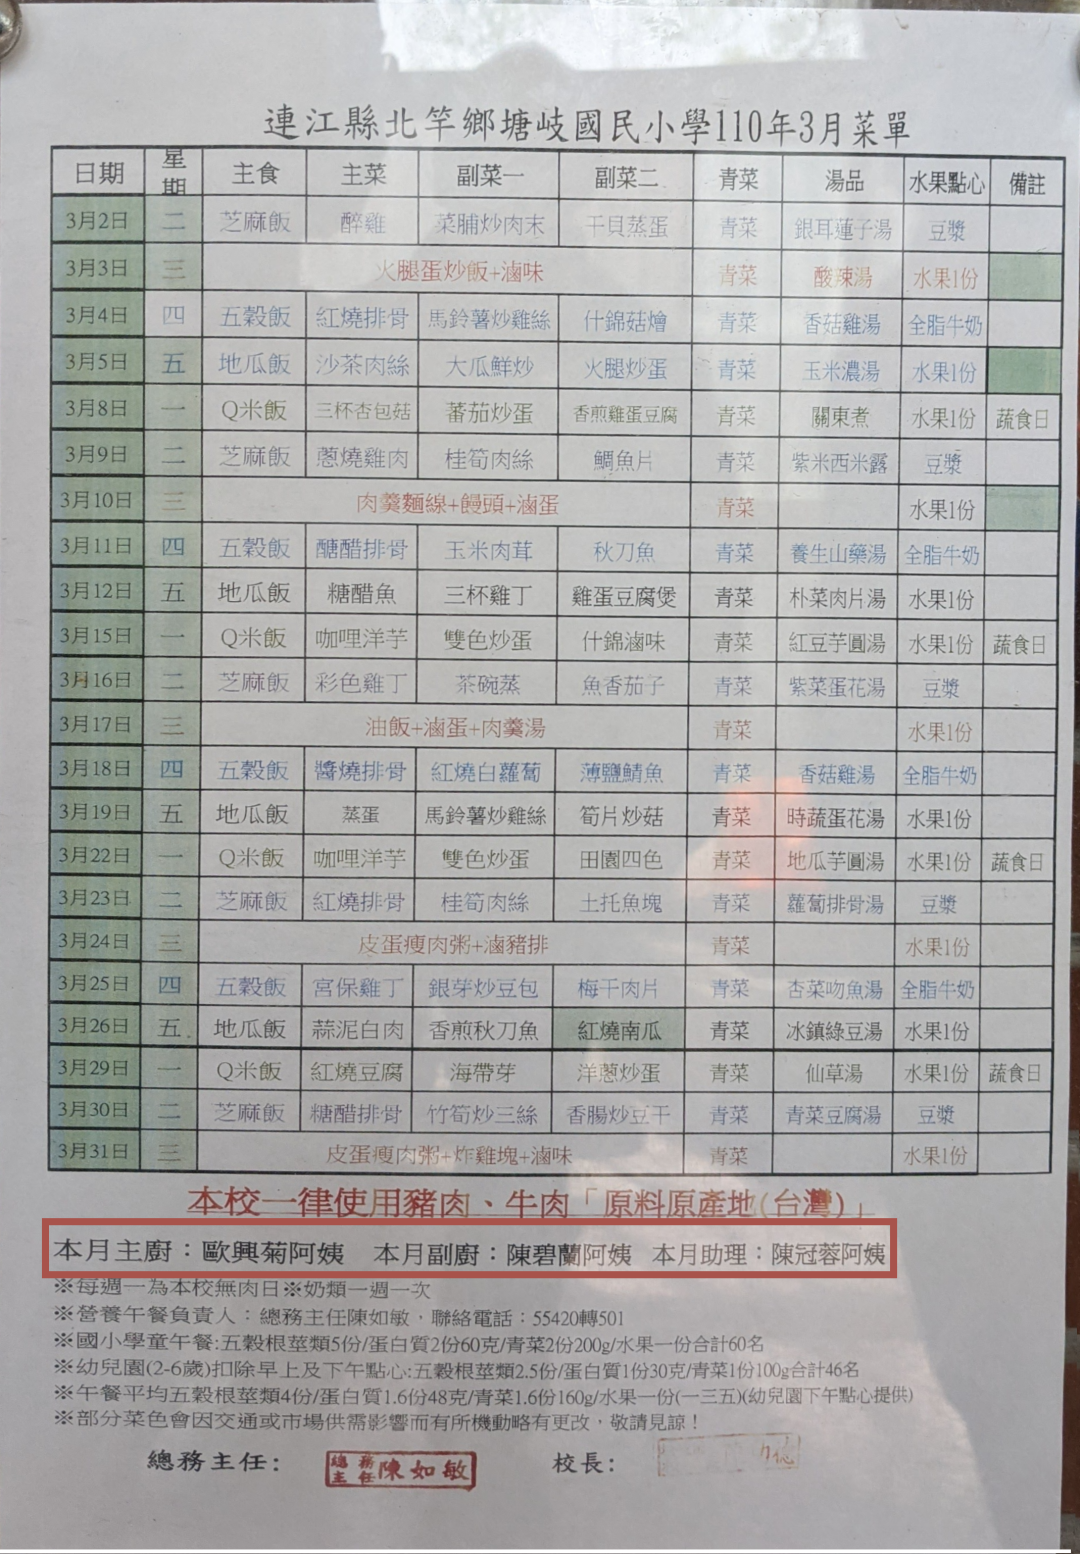 連江縣北竿鄉塘岐國民小學110年3月菜單
日期 星期 主食 主菜 副菜一 副菜二 青菜 湯品 水果點心 備註
3月2日 二 芝麻飯 醉雞 菜脯炒肉末 干貝蒸蛋 青菜 銀耳蓮子湯 豆漿
3月3日 三 火腿蛋炒飯+滷味 青菜 酸辣湯 水果1份
3月4日 四 五穀飯 紅燒排骨 馬鈴薯炒雞絲 什錦菇燴 青菜 香菇雞湯 全脂牛奶
3月5日 五 地瓜飯 沙茶肉絲 大瓜鮮炒 火腿炒蛋 青菜 玉米濃湯 水果1份
3月8日 一 Q米飯 三杯杏包菇 蕃茄炒蛋 香煎雞蛋豆腐 青菜 關東煮 水果1份 蔬食日
3月9日 二 芝麻飯 蔥燒雞肉 桂筍肉絲 鯛魚片 青菜 紫米西米露 豆漿
3月10日 三 肉羹麵線+饅頭+滷蛋 青菜 水果1份
3月11日 四 五穀飯 醣醋排骨 玉米肉茸 秋刀魚 青菜 養生山藥湯 全脂牛奶
3月12日 五 地瓜飯 糖醋魚 三杯雞丁 雞蛋豆腐煲 青菜 朴菜肉片湯 水果1份
3月15日 一 Q米飯 咖哩洋芋 雙色炒蛋 什錦滷味 青菜 紅豆芋圓湯 水果1份 蔬食日
3月16日 二 芝麻飯 彩色雞丁 茶碗蒸 魚香茄子 青菜 紫菜蛋花湯 豆漿
3月17日 三 油飯+滷蛋+肉羹湯 青菜 水果1份
3月18日 四 五穀飯 醬燒排骨 紅燒白蘿蔔 薄鹽鯖魚 青菜 香菇雞湯 全脂牛奶
3月19日 五 地瓜飯 蒸蛋 馬鈴薯炒雞絲 筍片炒菇 青菜 時蔬蛋花湯 水果1份
3月22日 一 Q米飯 咖哩洋芋 雙色炒蛋 田園四色 青菜 地瓜芋圓湯 水果1份 蔬食日
3月23日 二 芝麻飯 紅燒排骨 桂筍肉絲 土托魚塊 青菜 蘿蔔排骨湯 豆漿
3月24日 三 皮蛋瘦肉粥+滷豬排 青菜 水果1份
3月25日 四 五穀飯 宮保雞丁 銀芽炒豆包 梅干肉片 青菜 杏菜吻魚湯 全脂牛奶
3月26日 五. 地瓜飯 蒜泥白肉 香煎秋刀魚 紅燒南瓜 青菜 冰鎮綠豆湯 水果1份
3月29日 一 Q米飯 紅燒豆腐 海帶芽 洋蔥炒蛋 青菜 仙草湯 水果1份 蔬食日
3月30日 二 芝麻飯 糖醋排骨 竹筍炒三絲 香腸炒豆干 青菜 青菜豆腐湯 豆漿
3月31日 三 皮蛋瘦肉粥+炸雞塊+滷味 青菜 水果1份
本校一律使用豬肉、牛肉「原料原產地(台灣)」
本月主廚：歐興菊阿姨 本月副廚：陳碧蘭阿姨 本月助理：陳冠蓉阿姨
※每週一為本校無肉日※奶類一週一次
※營養午餐負責人：總務主任陳如敏，聯絡電話：55420轉501
※國小學童午餐:五穀根莖類5份/蛋白質2份60克/青菜2份200g/水果一份合計60名
※幼兒園(2-6歲)扣除早上及下午點心:五穀根莖類2.5份/蛋白質1份30克/青菜1份100g合計46名
※午餐平均五穀根莖類4份/蛋白質1.6份48克/青菜1.6份160g/水果一份(一三五)(幼兒園下午點心提供)
※部分菜色會因交通或市場供需影響而有所機動略有更改，敬請見諒！
總務主任: 總務主任 陳如敏 校長: